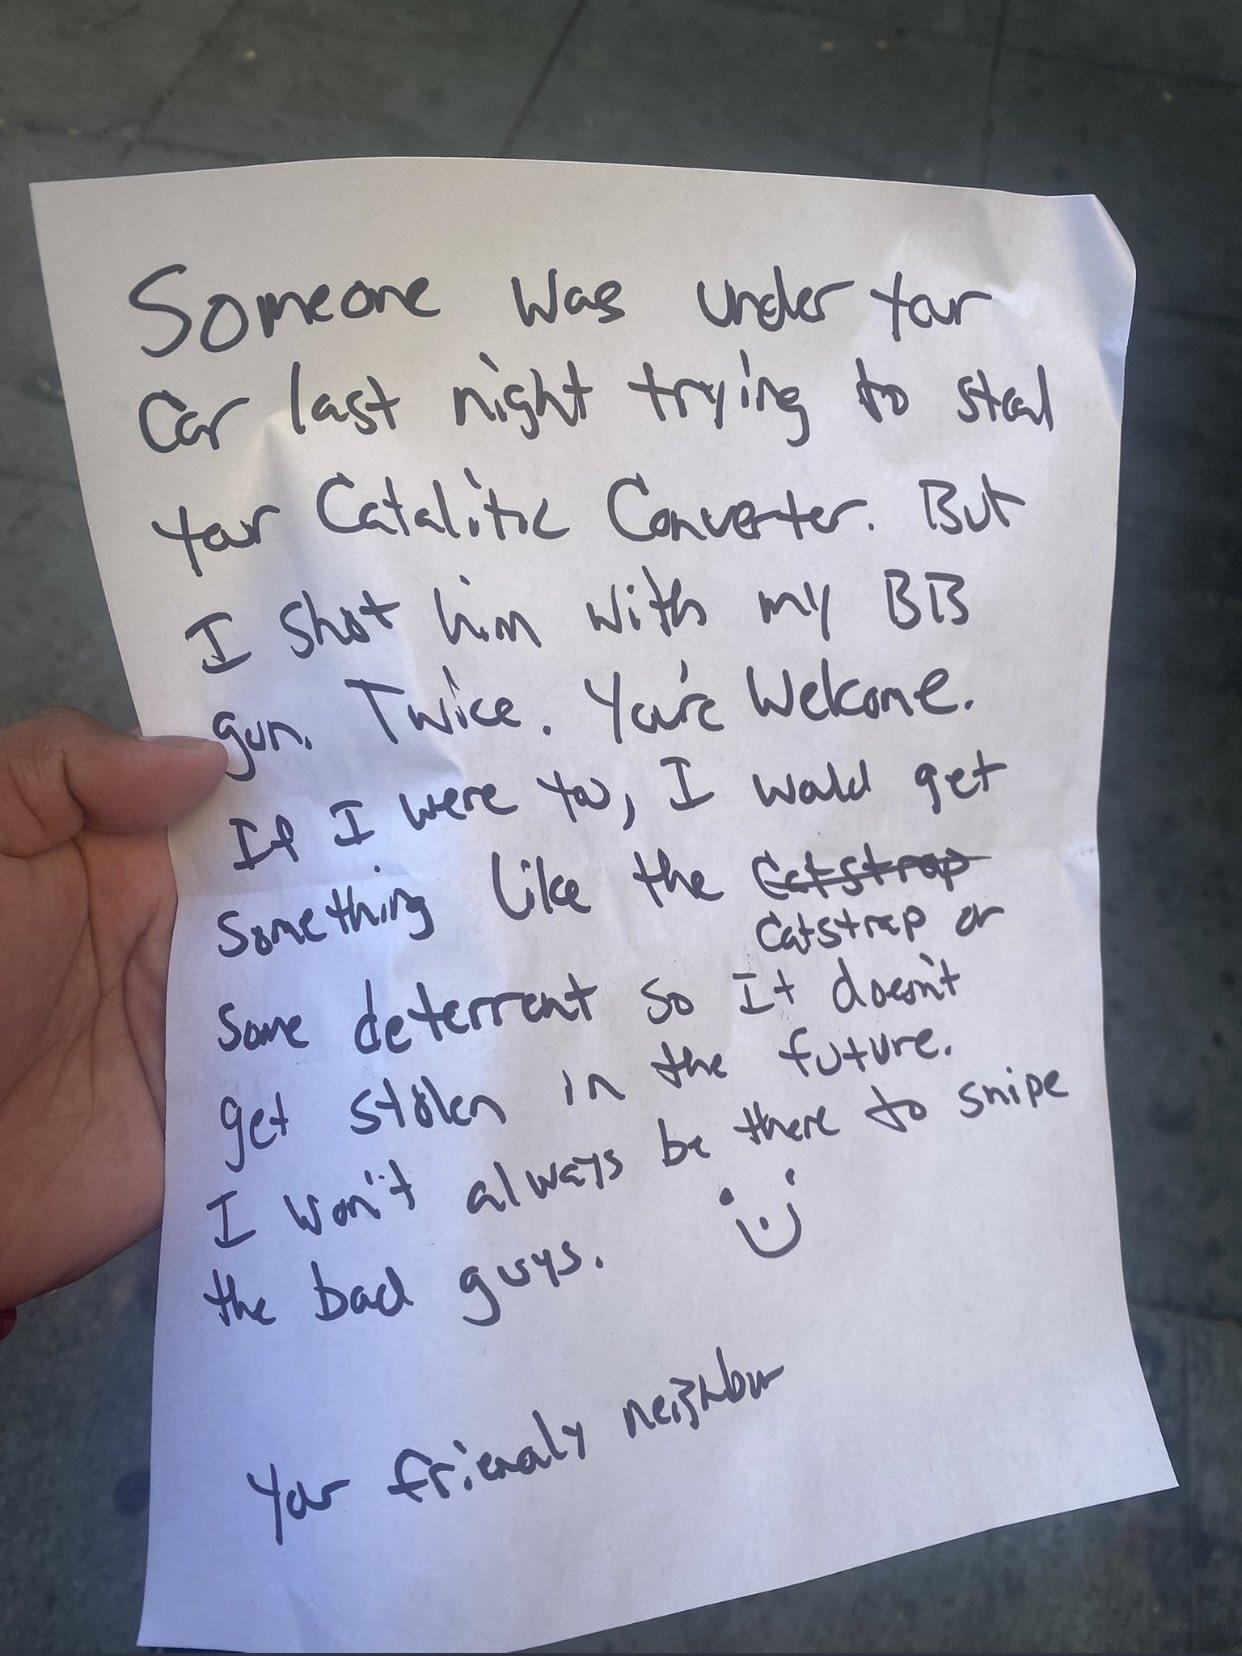 Someone was under your
Car last night trying to steal
your Catalitic Converter. But
I shot him with my BB
gun. Twice. You're Welcome.
If I were you, I would get
Something like the Catstrap
Catstrap or
Some deterrent so It doesn't
get stolen in the future.
I won't always be there to snipe
the bad guys.
Your friendly neighbor